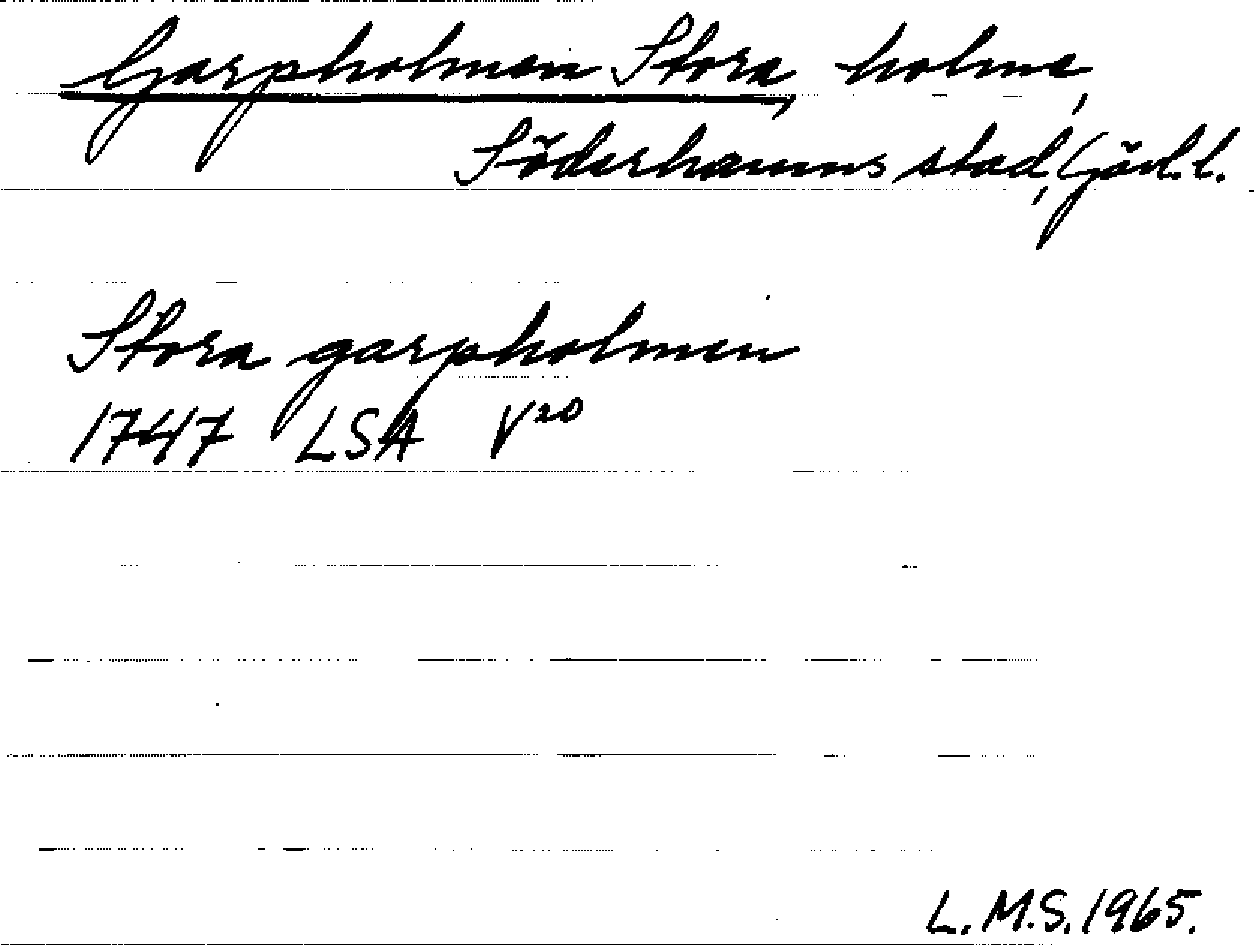 Garpholmen Stora, holme,
Söderhamns stad, Gävl.l.
Stora garpholmen
1747 LSA V20
L.M.S.1965.